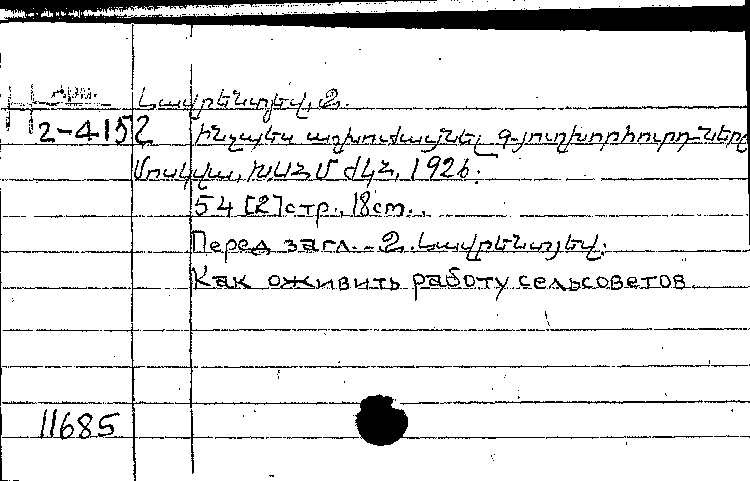 Լավրենտեվ, Զ.
2-4152
Ինչպես աշխուժացնել գ-յուղխորհուրդ-ները
Մոսկվա, ԽՍՀՄ ԺԿՀ, 1926.
54 [2] стр., 18 cm.,
Перед загл. - Զ. Լավրենտյեվ.
Как оживить работу сельсоветов
11685